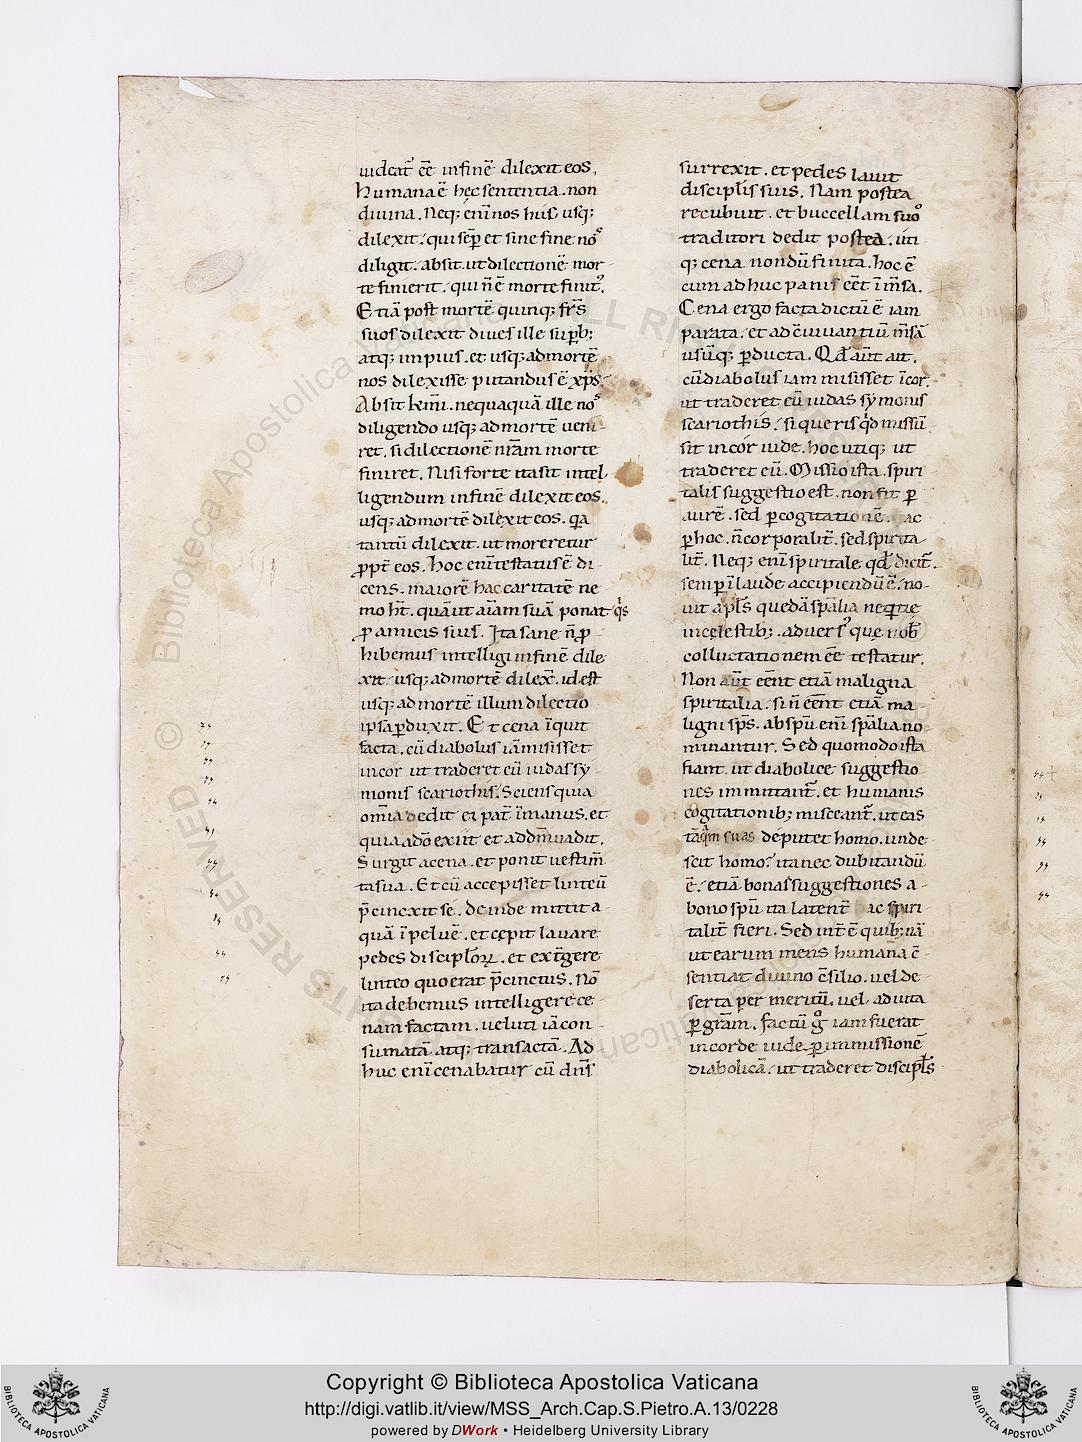 uideat̄ eē̄ infinē dilexit eos.
Humana ē hęc sententia. non
diuina. Neq; eni̅ nos huś usq;
dilexit. qui sēp et sine fine noˢ
diligit. absit. ut dilectionē mor
te finierit. qui n̄ ē morte finit᾽.
Etiā post mortē quinq; fr̄s
suos dilexit diues ille sup̱b;
atq; impius. et usq; ad mortē
nos dilexisse putandus ē xp̄s.
Absit km̄i. nequaquā ille noˢ
diligendo usq; ad mortē ueni-
ret. si dilectionē nr̄am morte
finiret. Nisi forte ita sit intel
ligendum infinē dilexit eos.
usq; ad mortē dilexit eos. q̄a
tantū dilexit. ut moreretur
ꝓpt̄ eos. Hoc eni̅ testatus ē di-
cens. maiorē hac caritatē ne
mo ht̄. quā ut ai̅am suā ponat q̍s
ꝓ amicis suis. Ita sane n̄ ꝓ-
hibemus intelligi infinē dile
xit. usq; ad mortē dilex̄. id est
usq; ad mortē illum dilectio
ipsa ꝑduxit. Et cena īquit
facta. cū diabolus iā misisset
incor ut traderet eū iudas sy-
monis scariothis. Sciens quia
om̄ia dedit ei pat̄ īmanus. et
quia adō exiit et addm̄ uadit.
Surgit acena. et ponit uestim̄
ta sua. Et cū accepisset linteū
p̄cinexit se. deinde mittit a-
quā īpeluē. et cępit lauare
pedes discipl̄oꝝ. et ext̄gere
linteo quo erat p̄cinctus. Nō
ita debemus intelligere ce-
nam factam. ueluti iā con-
sumatā atq; transactā. Ad
huc eni̅ cenabatur cū dn̄s
surrexit. et pedes lauit
discipl̄is suis. Nam postea
recubuit. et buccellam suo᷒
traditori dedit postea. uti-
q; cena nondū finita. hoc ē
cum ad huc panis eēt ī m̄sa.
Cena ergo facta dictū ē iam
parata. et ad ꝯuiuantiū m̄sā
usūq; ꝑducta. Qd̄ aūt ait.
cū diabolus iam misisset īcor.
ut traderet eū iudas symonis
scariothis. si queris q̍d missū
sit incor iude. hoc utiq; ut
traderet eū. Missio ista. spiri
talis suggestio est. non fit ꝑ
aurē. sed ꝑ cogitationē. ac
ꝑ hoc. n̄ corporalit̄. sed spirita
lit̄. Neq; eni̅ spiritale qd̄ dicit̄.
semper īlaude accipiendū ē. no-
uit apl̄s quedā sp̄alia nequitie
incelestib;. aduers᾽ que nob̄
colluctationem eē testatur.
Non aūt eēnt etiā maligna
spiritalia. si n̄ eēnt etiā ma
ligni sp̄s. absp̄u eni̅ sp̄alia no-
minantur. Sed quomodo ista
fiant. ut diabolice suggestio
nes immittant̄. et humanis
cogitationib; misceant̄. ut eas
tāq̄m suas deputet homo. unde
scit homo? ita nec dubitandū
ē. etiā bonas suggestiones a-
bono sp̄u ita latent̄ ac spiri-
talit̄ fieri. Sed int̄ ē quib; nā
ut earum mens humana c̄-
sentiat diuino c̄silio. uel de-
serta per meritū. uel adiuta
ꝑ gr̄am. factū g᷒ iam fuerat
incorde iude. ꝑ immissionē
diabolicā. ut traderet discipl̄s
Copyright © Biblioteca Apostolica Vaticana
http://digi.vatlib.it/view/MSS_Arch.Cap.S.Pietro.A.13/0228
powered by DWork • Heidelberg University Library
BIBLIOTECA APOSTOLICA VATICANA
BIBLIOTECA APOSTOLICA VATICANA